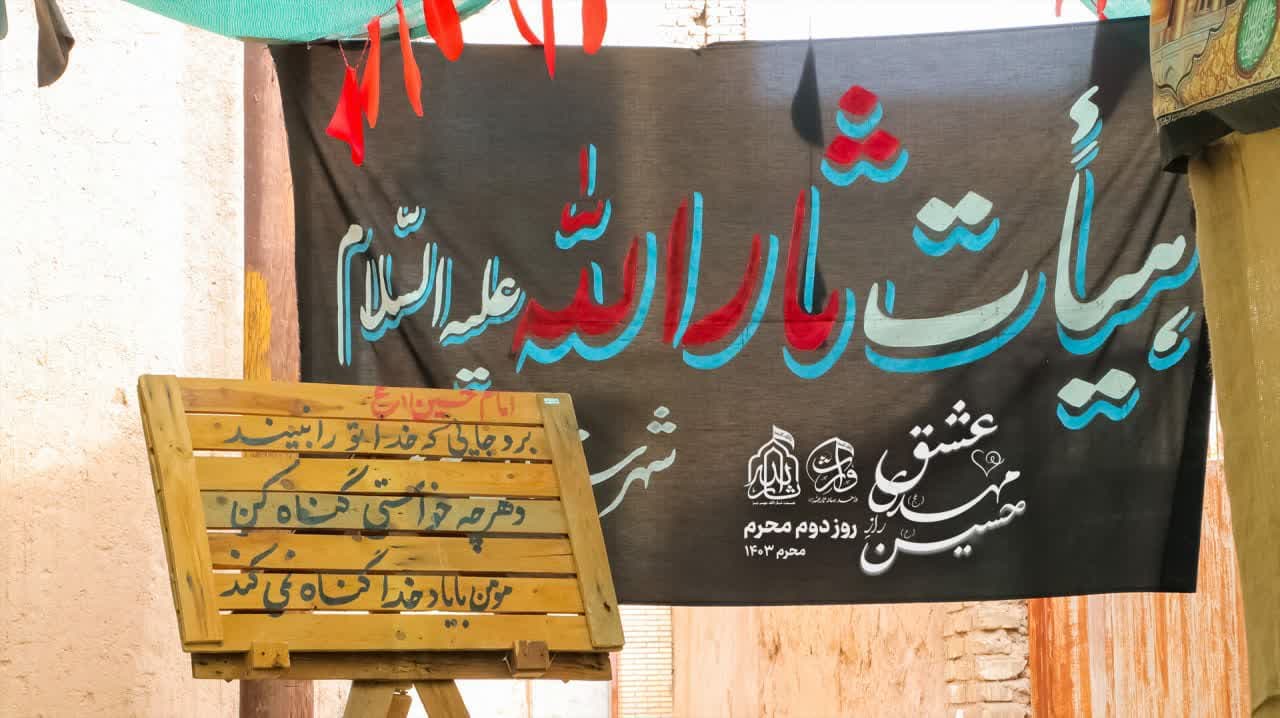 هیأت ثارالله علیه السلام
شهر
عشق
مهدی (عج)
راز
حسین (ع)
روز دوم محرم
محرم ۱۴۰۳
امام حسین (ع)
برو جایی که خدا تو را نبیند
و هر چه خواستی گناه کن
مومن با یاد خدا گناه نمی کند